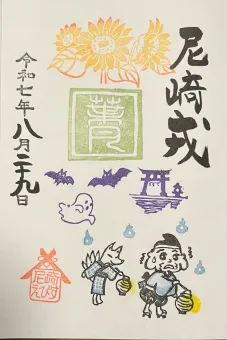 尼崎戎
令和七年八月二十九日
尼崎
えびす